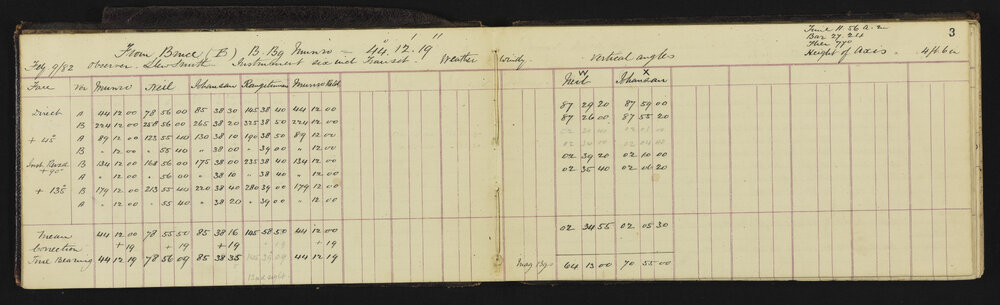 3
Time 11.56 a.m
Bar 27.24
Ther 77°
Height of Axis - 4ft 6in
From Bruce (B) B. Bg Munro - 44° 12' 19"
Feb 9/82 Observer Instrument six inch Transit. Weather Windy. Vertical angles
Face Ver Munro Neil Johanson Rangitumau Munro
W X
Neil Johanson
Direct A 44 12 00 78 56 00 85 38 30 145 38 40 44 12 00 87 29 20 87 59 00
B 224 12 00 258 56 00 265 38 20 325 38 50 224 12 00 87 26 00 87 55 20
+ 45° A 89 12 00 123 55 40 130 38 10 190 38 50 89 12 00
B " 12 00 " 55 40 " 38 00 " 39 00 " 12 00
Inst Revsd B 134 12 00 168 56 00 175 38 00 235 38 40 134 12 00 02 39 20 02 10 00
+90° A " 12 00 " 56 00 " 38 10 " 38 40 " 12 00 02 35 40 02 06 20
+ 135° B 179 12 00 213 55 40 220 38 40 280 39 00 179 12 00
A " 12 00 " 55 40 " 38 20 " 39 00 " 12 00
Mean 44 12 00 78 55 50 85 38 16 145 58 50 44 12 00 02 34 55 02 05 30
Correction + 19 + 19 + 19 + 19
True Bearing 44 12 19 78 56 09 85 38 35 44 12 19
Mag Bgs 64 13 00 70 55 00